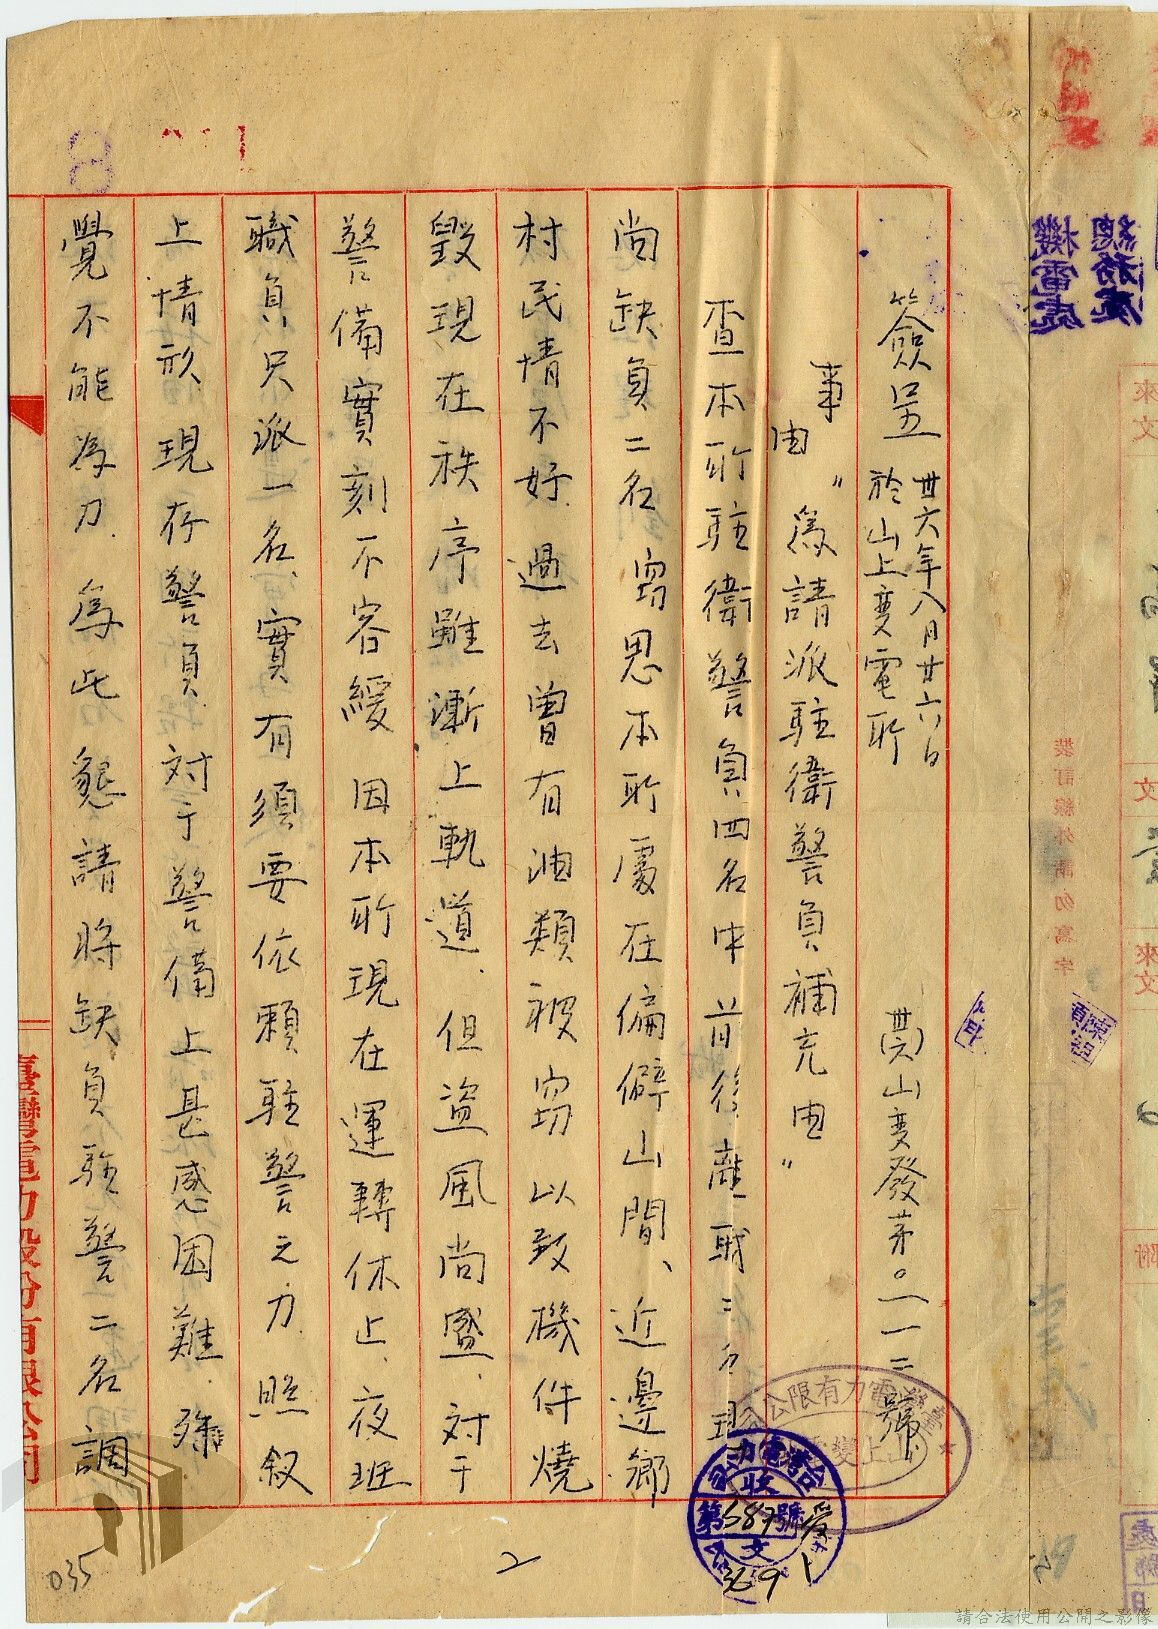 簽呈
卅六年八月廿六日
於山上變電所
(卅六)山變發第〇一一二號
事由
"為請派駐衛警員補充由"
查本所駐衛警員四名中前後離職二名現
尚缺員二名竊思本所處在偏僻山間、近邊鄉
村民情不好過去曾有油類被窃以致機件燒
毀現在秩序雖漸上軌道.但盗風尚盛、対于
警備實刻不容緩因本所現在運轉休止、夜班
職員只派一名、實有須要依賴駐警之力照叙
上情形現存警員対于警備上甚感困難.殊
覺不能為力.為此懇請將缺員駐警二名調
臺灣電力股份有限公司
收文
第587號
36 9 1
2
035
8
總務處
機電處
來文
裝訂線外請勿寫字
來文
附
請合法使用公開之影像